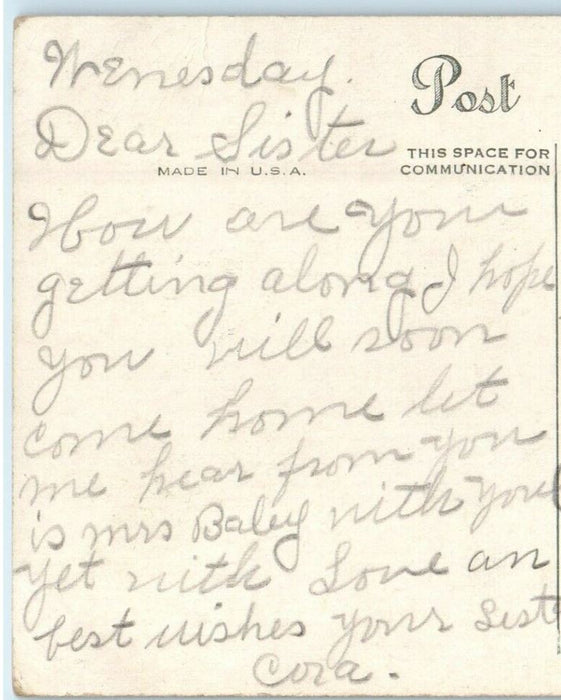 Wenesday.
Post
Dear Sister
THIS SPACE FOR
COMMUNICATION
MADE IN U.S.A.
How are you
getting along I hope
you will soon
come home let
me hear from you
is mrs Baley with you
yet with Love an
best wishes your Sist
Cora.